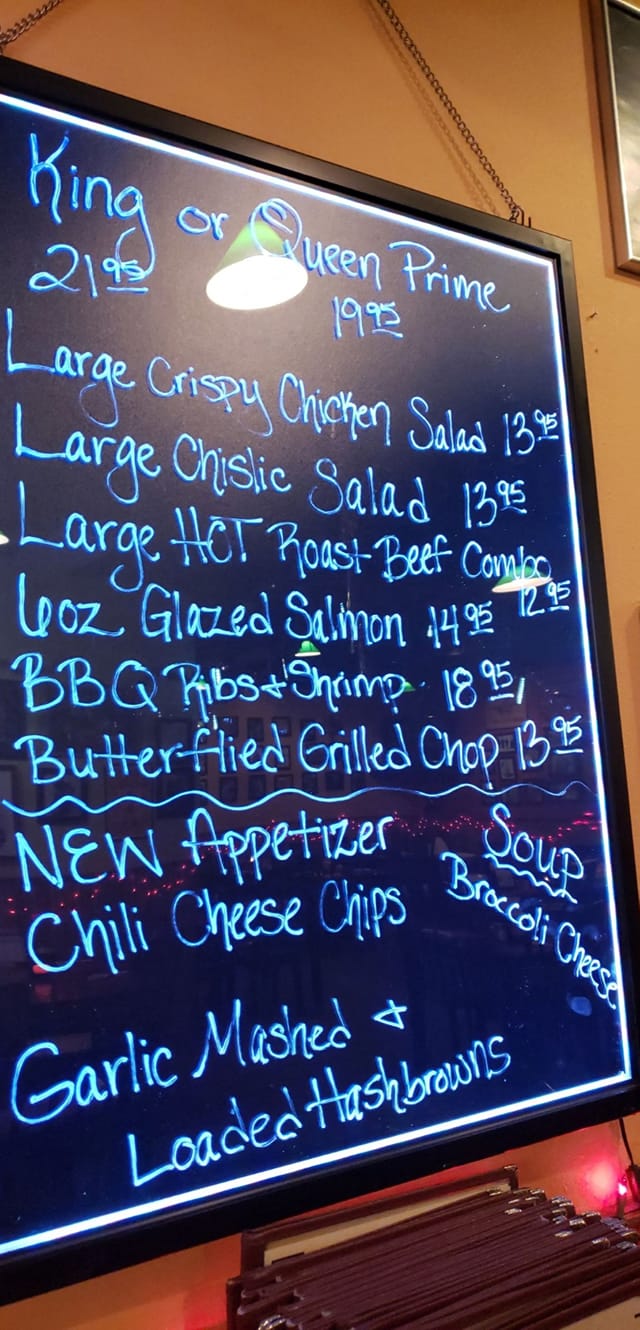 King or Queen Prime
21 95 19 95
Large Crispy Chicken Salad 13 95
Large Chislic Salad 13 95
Large HOT Roast Beef Combo
12.95
6oz Glazed Salmon 14 95
BBQ Ribs & Shrimp 18 95
Butterflied Grilled Chop 13 95
NEW Appetizer
Chili Cheese Chips
Soup
Broccoli Cheese
Garlic Mashed &
Loaded Hashbrowns